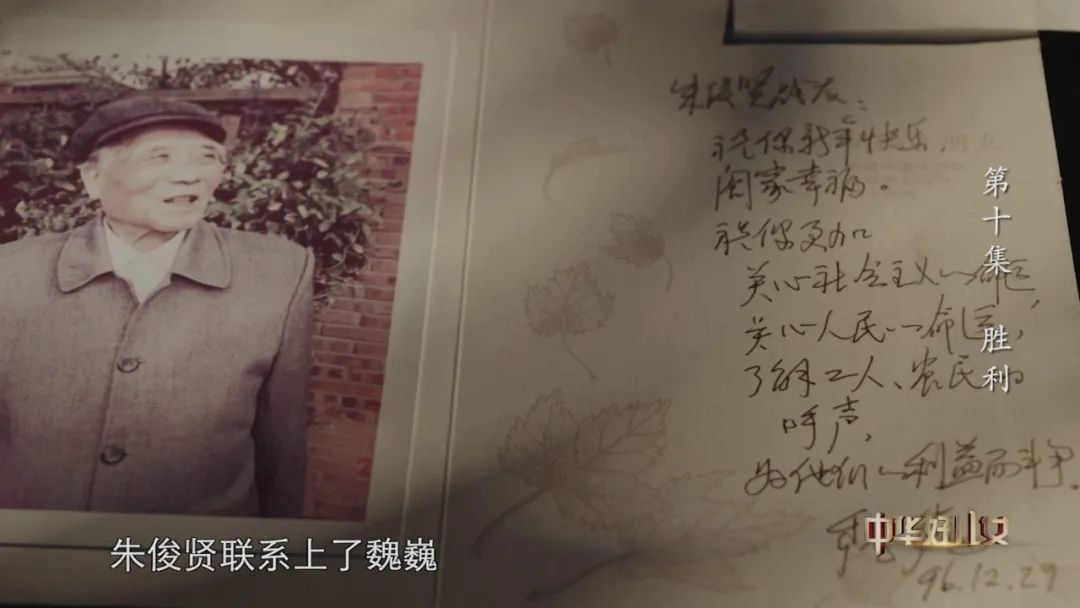 朱俊贤战友：
祝你新年快乐，
阖家幸福。
祝你更加
关心社会主义的命运，
关心人民的命运，
了解工人、农民的
呼声，
为他们的利益而斗争。
魏巍
96.12.29
第十集 胜利
中华好儿女
朱俊贤联系上了魏巍